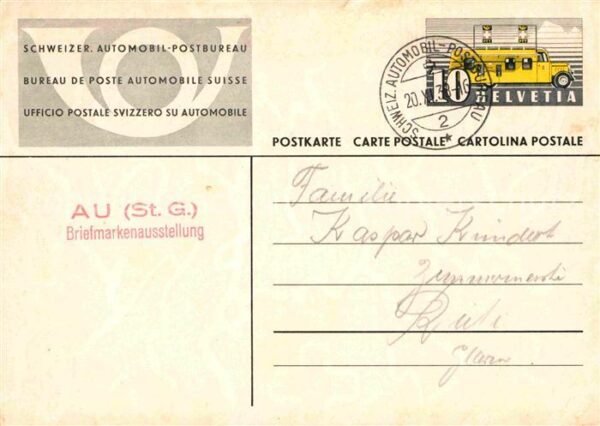 SCHWEIZER. AUTOMOBIL-POSTBUREAU
BUREAU DE POSTE AUTOMOBILE SUISSE
UFFICIO POSTALE SVIZZERO SU AUTOMOBILE
SCHWEIZ. AUTOMOBIL-POSTBUREAU
2
10
HELVETIA
POSTKARTE CARTE POSTALE CARTOLINA POSTALE
AU (St. G.)
Briefmarkenausstellung
Familie
Kaspar Kundert
Rüti
Glarus